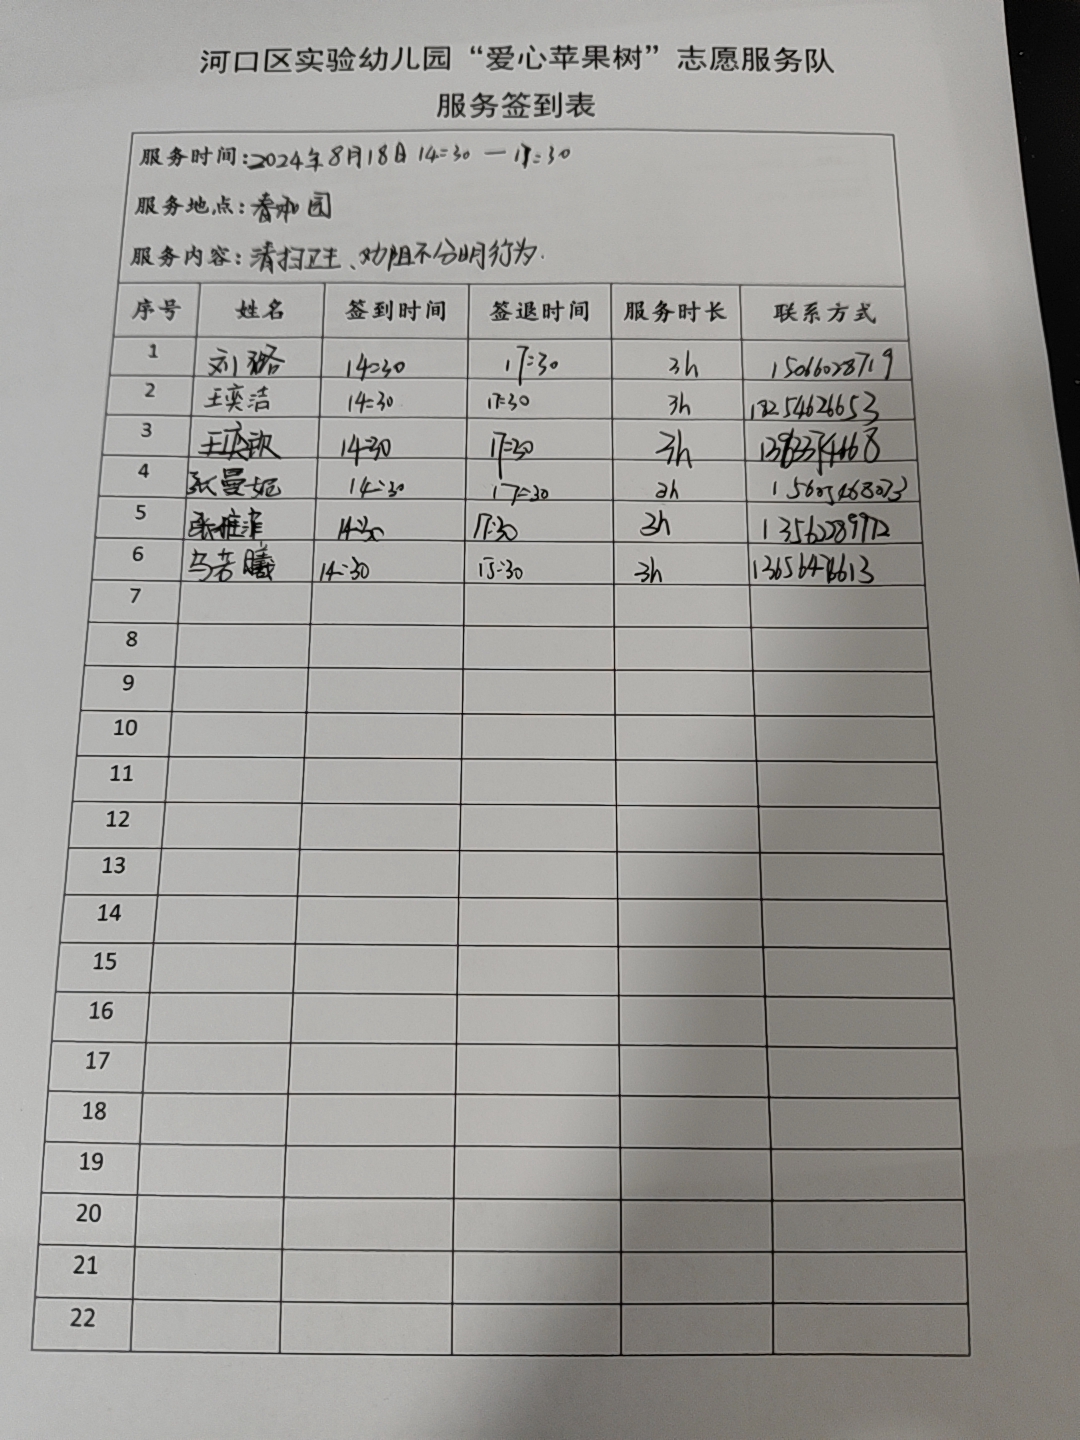 河口区实验幼儿园“爱心苹果树”志愿服务队
服务签到表
服务时间:2024年8月18日14:30—17:30
服务地点:春和园
服务内容:清扫卫生、劝阻不分明行为.
序号 姓名 签到时间 签退时间 服务时长 联系方式
1 刘璐 14:30 17:30 3h 15066028719
2 王奕洁 14:30 17:30 3h 13254626653
3 14:30 17:30 3h
4 张曼妮 14:30 17:30 3h
5 14:30 17:30 3h 13562289972
6 马若曦 14:30 3h
7
8
9
10
11
12
13
14
15
16
17
18
19
20
21
22